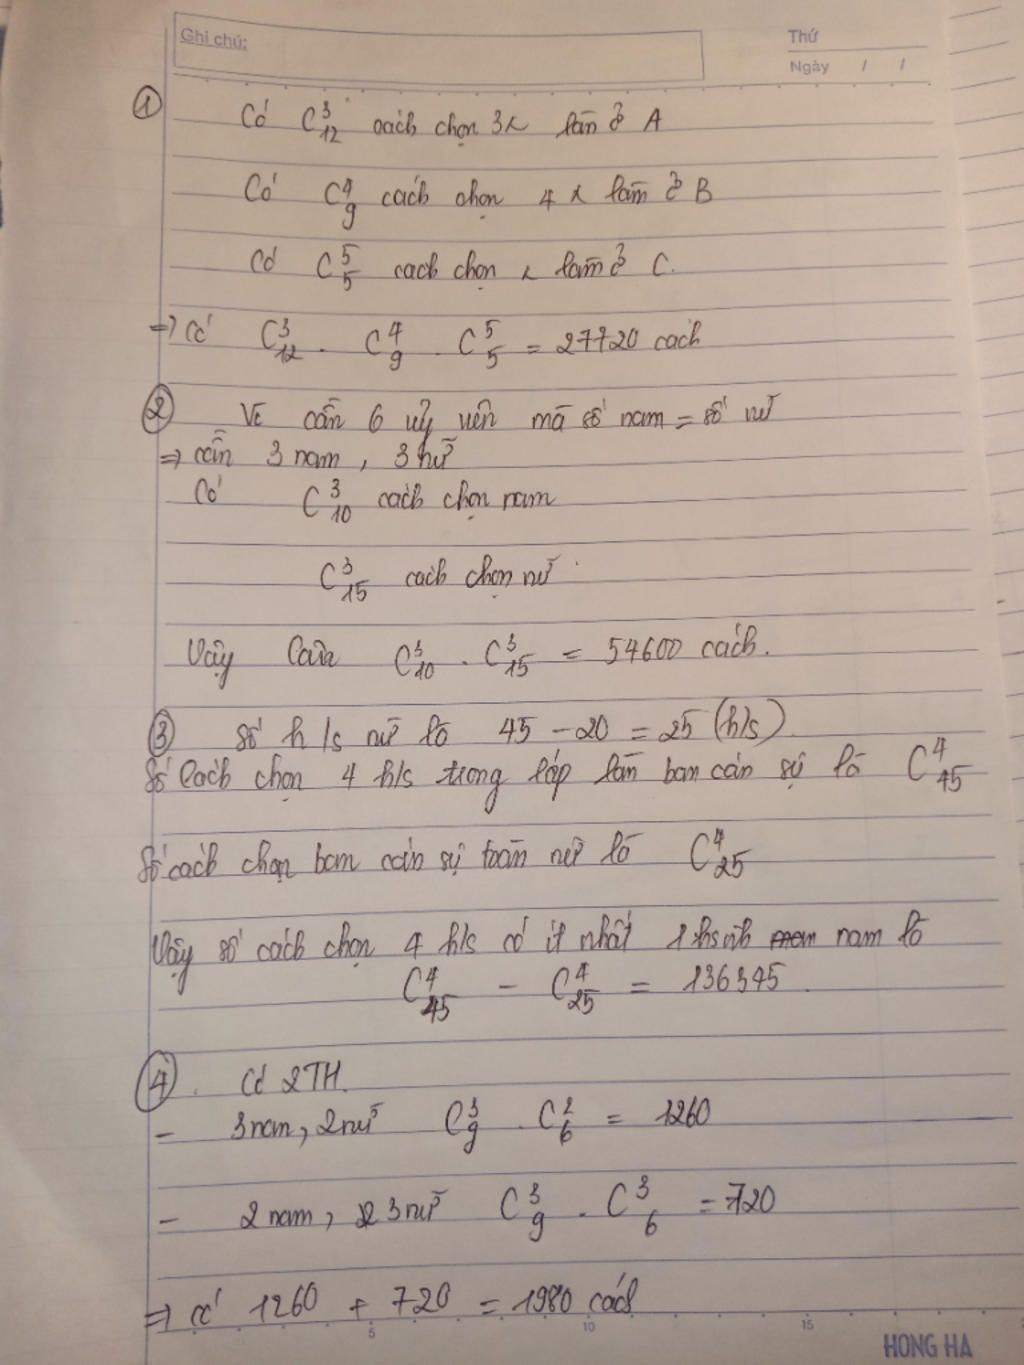 Ghi chú:
Thứ
Ngày / /
① Có C³₁₂ cách chọn 3 làm ở A
Có C⁴₉ cách chọn 4 làm ở B
Có C⁵₅ cách chọn làm ở C.
=> Có C³₁₂ . C⁴₉ . C⁵₅ = 27720 cách
② Vì cần 6 uỷ viên mà số nam = số nữ
=> cần 3 nam, 3 nữ
Có C³₁₀ cách chọn nam
C³₁₅ cách chọn nữ
Vậy C³₁₀ . C³₁₅ = 54600 cách.
③ Số h/s nữ là 45 - 20 = 25 (h/s)
Số cách chọn 4 h/s trong lớp làm ban cán sự là C⁴₄₅
Số cách chọn ban cán sự toàn nữ là C⁴₂₅
Vậy số cách chọn 4 h/s có ít nhất 1 nam là
C⁴₄₅ - C⁴₂₅ = 136345.
④. Có 2TH.
- 3 nam, 2 nữ C³₉ . C²₆ = 1260
- 2 nam, 3 nữ C³₉ . C³₆ = 720
=> có 1260 + 720 = 1980 cách
5 10 15
HONG HA